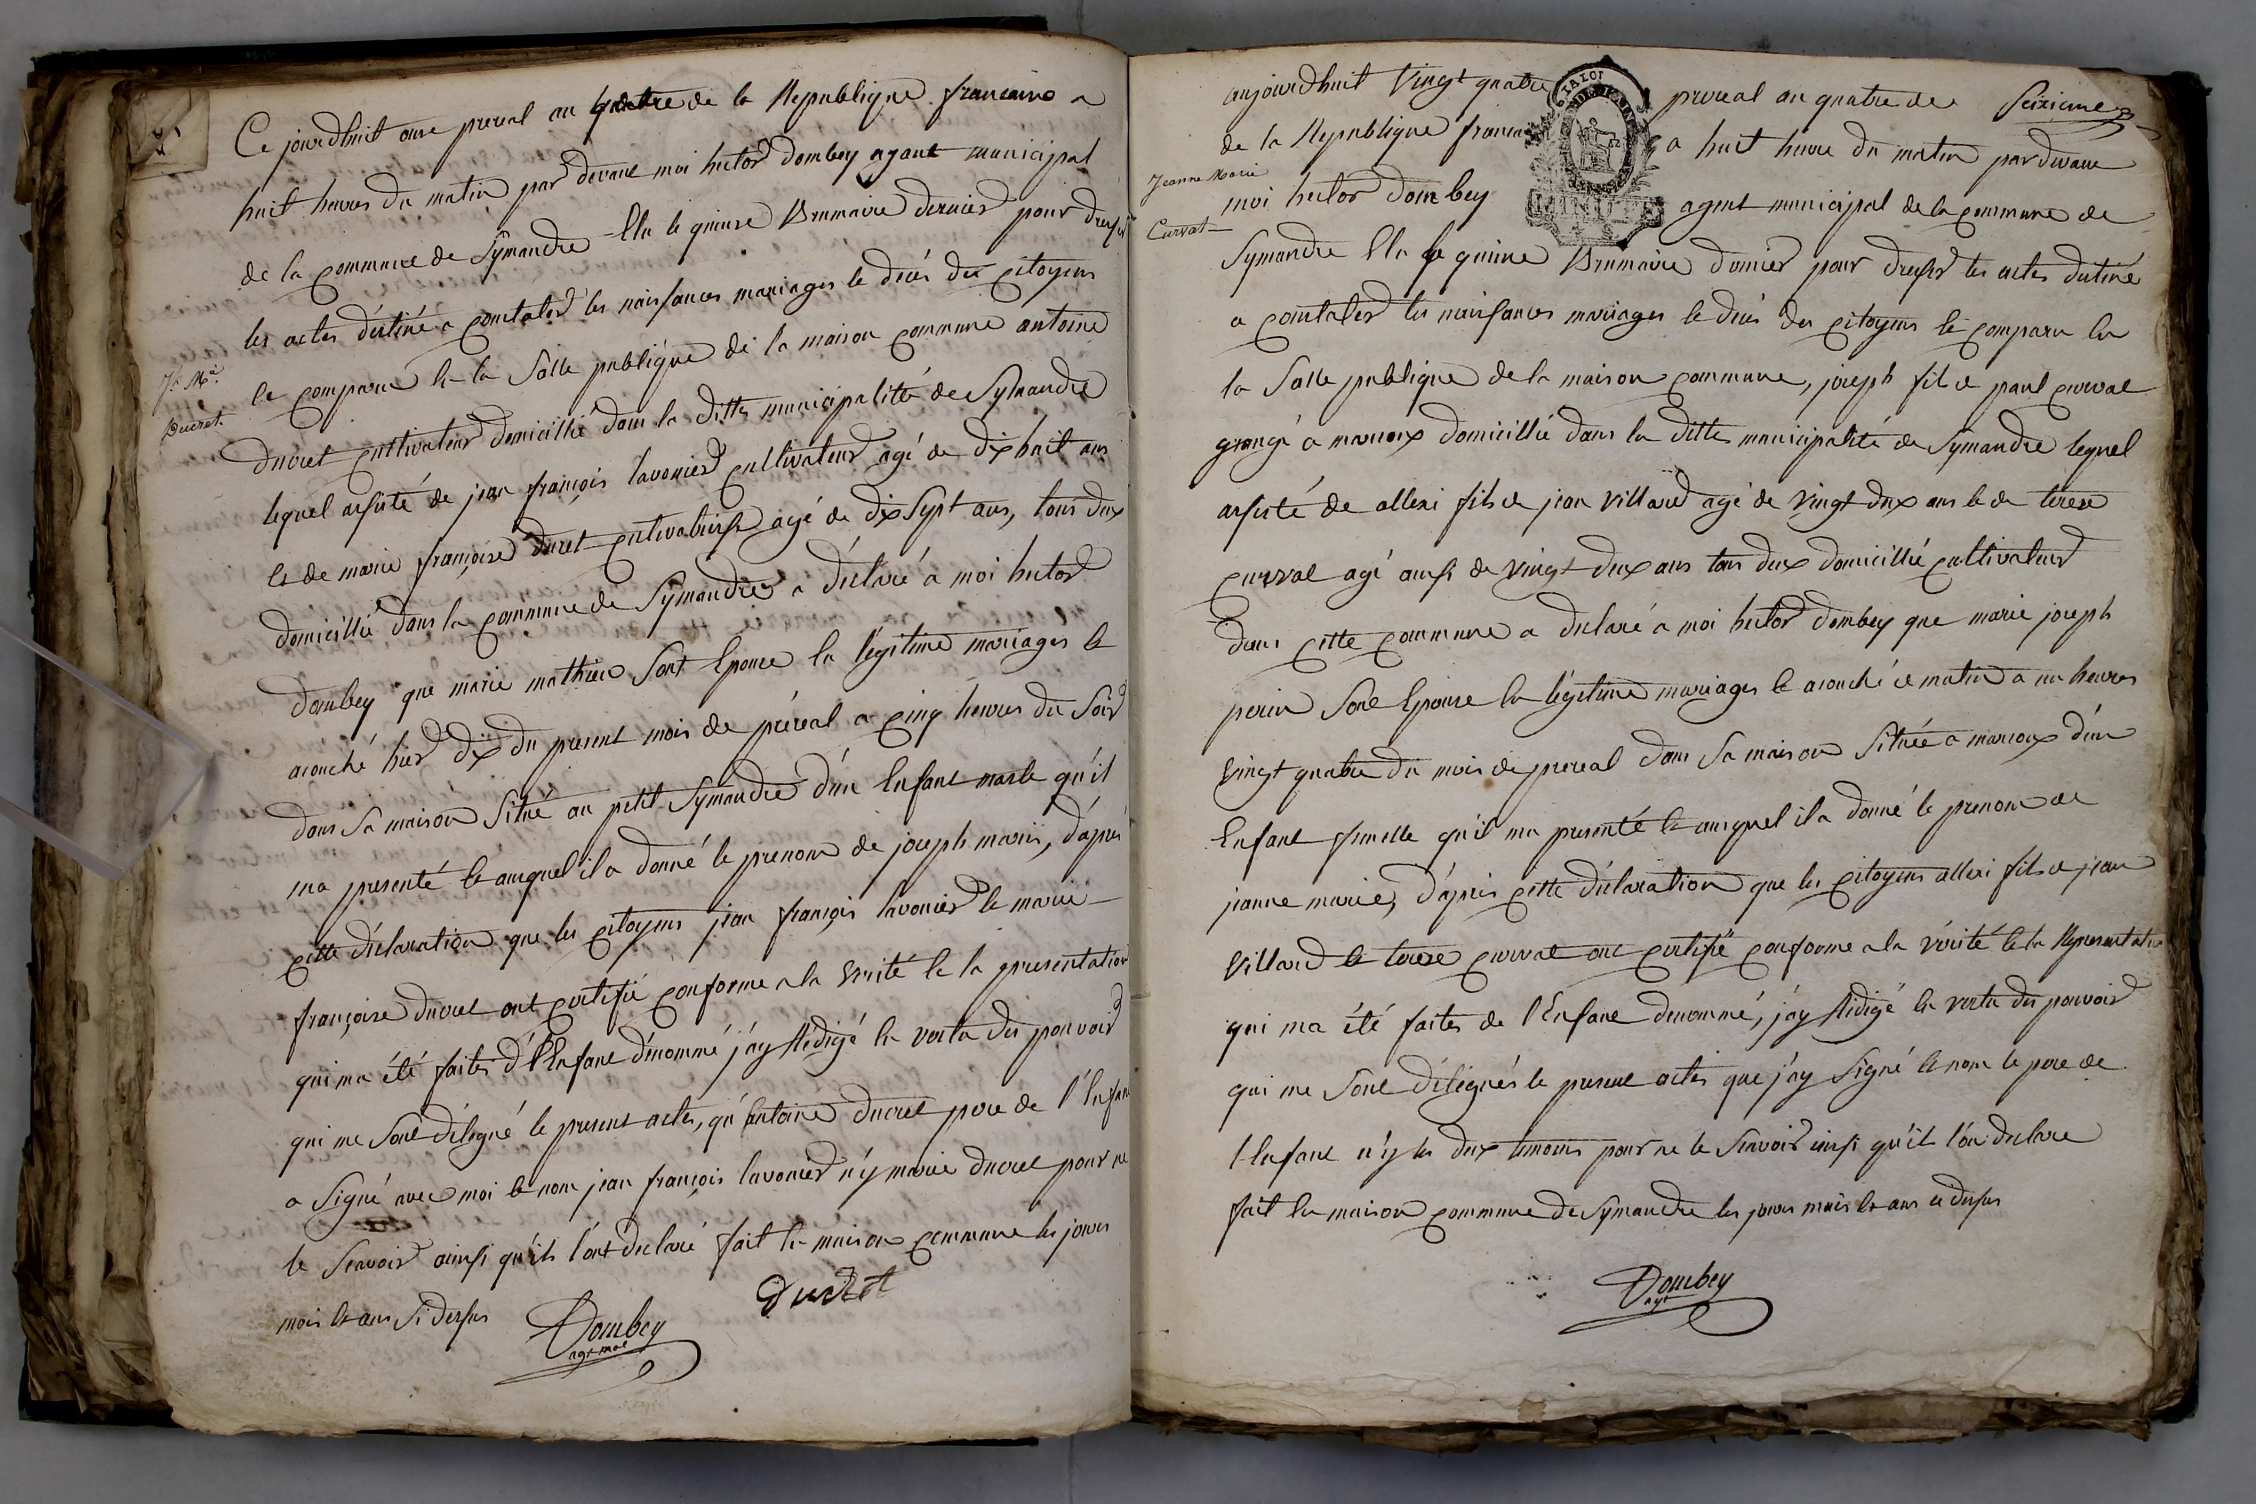 Ce jourdhuit onze prereal an quatre de la Republique francaine a
huit heures du matin par devant moi hector dombey agant municipal
de la commune de Symandre Elu le quinze Brummaire dernier pour dresser
les actes déstiné a constater les naissances mariages et décés des citoyens
et comparu En la Salle publique de la maison commune antoine
J.h M.e
Ducret.
ducret cultivateur domicillié dans la ditte municipalité de Symandre
lequel assisté de jean françois lavonier cultivateur agé de dix huit ans
et de marie françoise ducret cultivatrisse agé de dix sept ans, tous deux
domicillié dans la commune de Symandre a déclaré a moi hector
dombey que marie mathieu Sont Epouse En légitime mariages et
acouché hier dix du present mois de préreal a cinq heures du Soir
dans Sa maison Situé au petit Symandre d'un Enfant masle qu'il
ma presenté et auquel il a donné le prenom de joseph marie, d'aprés
cette déclaration que les citoyens jean françois lavonier et marie
françoise ducret ont certifié conforme a la vérité et la presentation
qui ma été faites d l'Enfant dénommé j'ay Rédigé En vertu des pouvoir
qui me Sont délégué le present actes, qu'antoine ducret pere de l'Enfant
a Signé avec moi et non jean françois lavonier n'y marie ducret pour ne
le Scavoir ainsi qu'ils l'ont declaré fait En maison commune les jours
mois et ans Si dessus
Dombey
agt mal
Ducret
aujourdhuit Vingt quatre prereal an quatre de Seizieme
de la Republique francai a huit heure du matin par devant
Jeanne Marie
Curvat
moi hector dombey agent municipal de la commune de
Symandre Elu le quinze Brummaire dernier pour dresser les actes dutiné
a constater les naissances mariages et décés des citoyens et comparu En
la Salle publique de la maison commune, joseph fils a paul curvat
grangé a marioux domicillié dans la ditte municipalité de Symandre lequel
assisté de allexi fils a jean villard agé de vingt deux ans et de terese
curvat agé aussi de vingt deux ans tous deux domicillié cultivateur
dans cette commune a declaré a moi hector dombey que marie joseph
perrin Sont Epouse En légitime mariages et acouché ce matin a un heures
vingt quatre du mois de prereal dans Sa maison Située a marioux d'un
Enfant femelle qu'il ma presenté et auquel il a donné le prenom de
jeanne marie, d'aprés cette déclaration que les citoyens allexi fils a jean
villard et terese curvat ont certifié conforme a la vérité et la Representation
qui ma été faites de l'Enfant denommé, j'ay Rédigé En vertu des pouvoir
qui me Sont délégués le present actes que j'ay Signé et non le pere de
l'Enfant n'y les deux temoins pour ne le Scavoir insi qu'il l'on declare
fait En maison commune de Symandre les jours mois et ans ci dessus
Dombey
agt